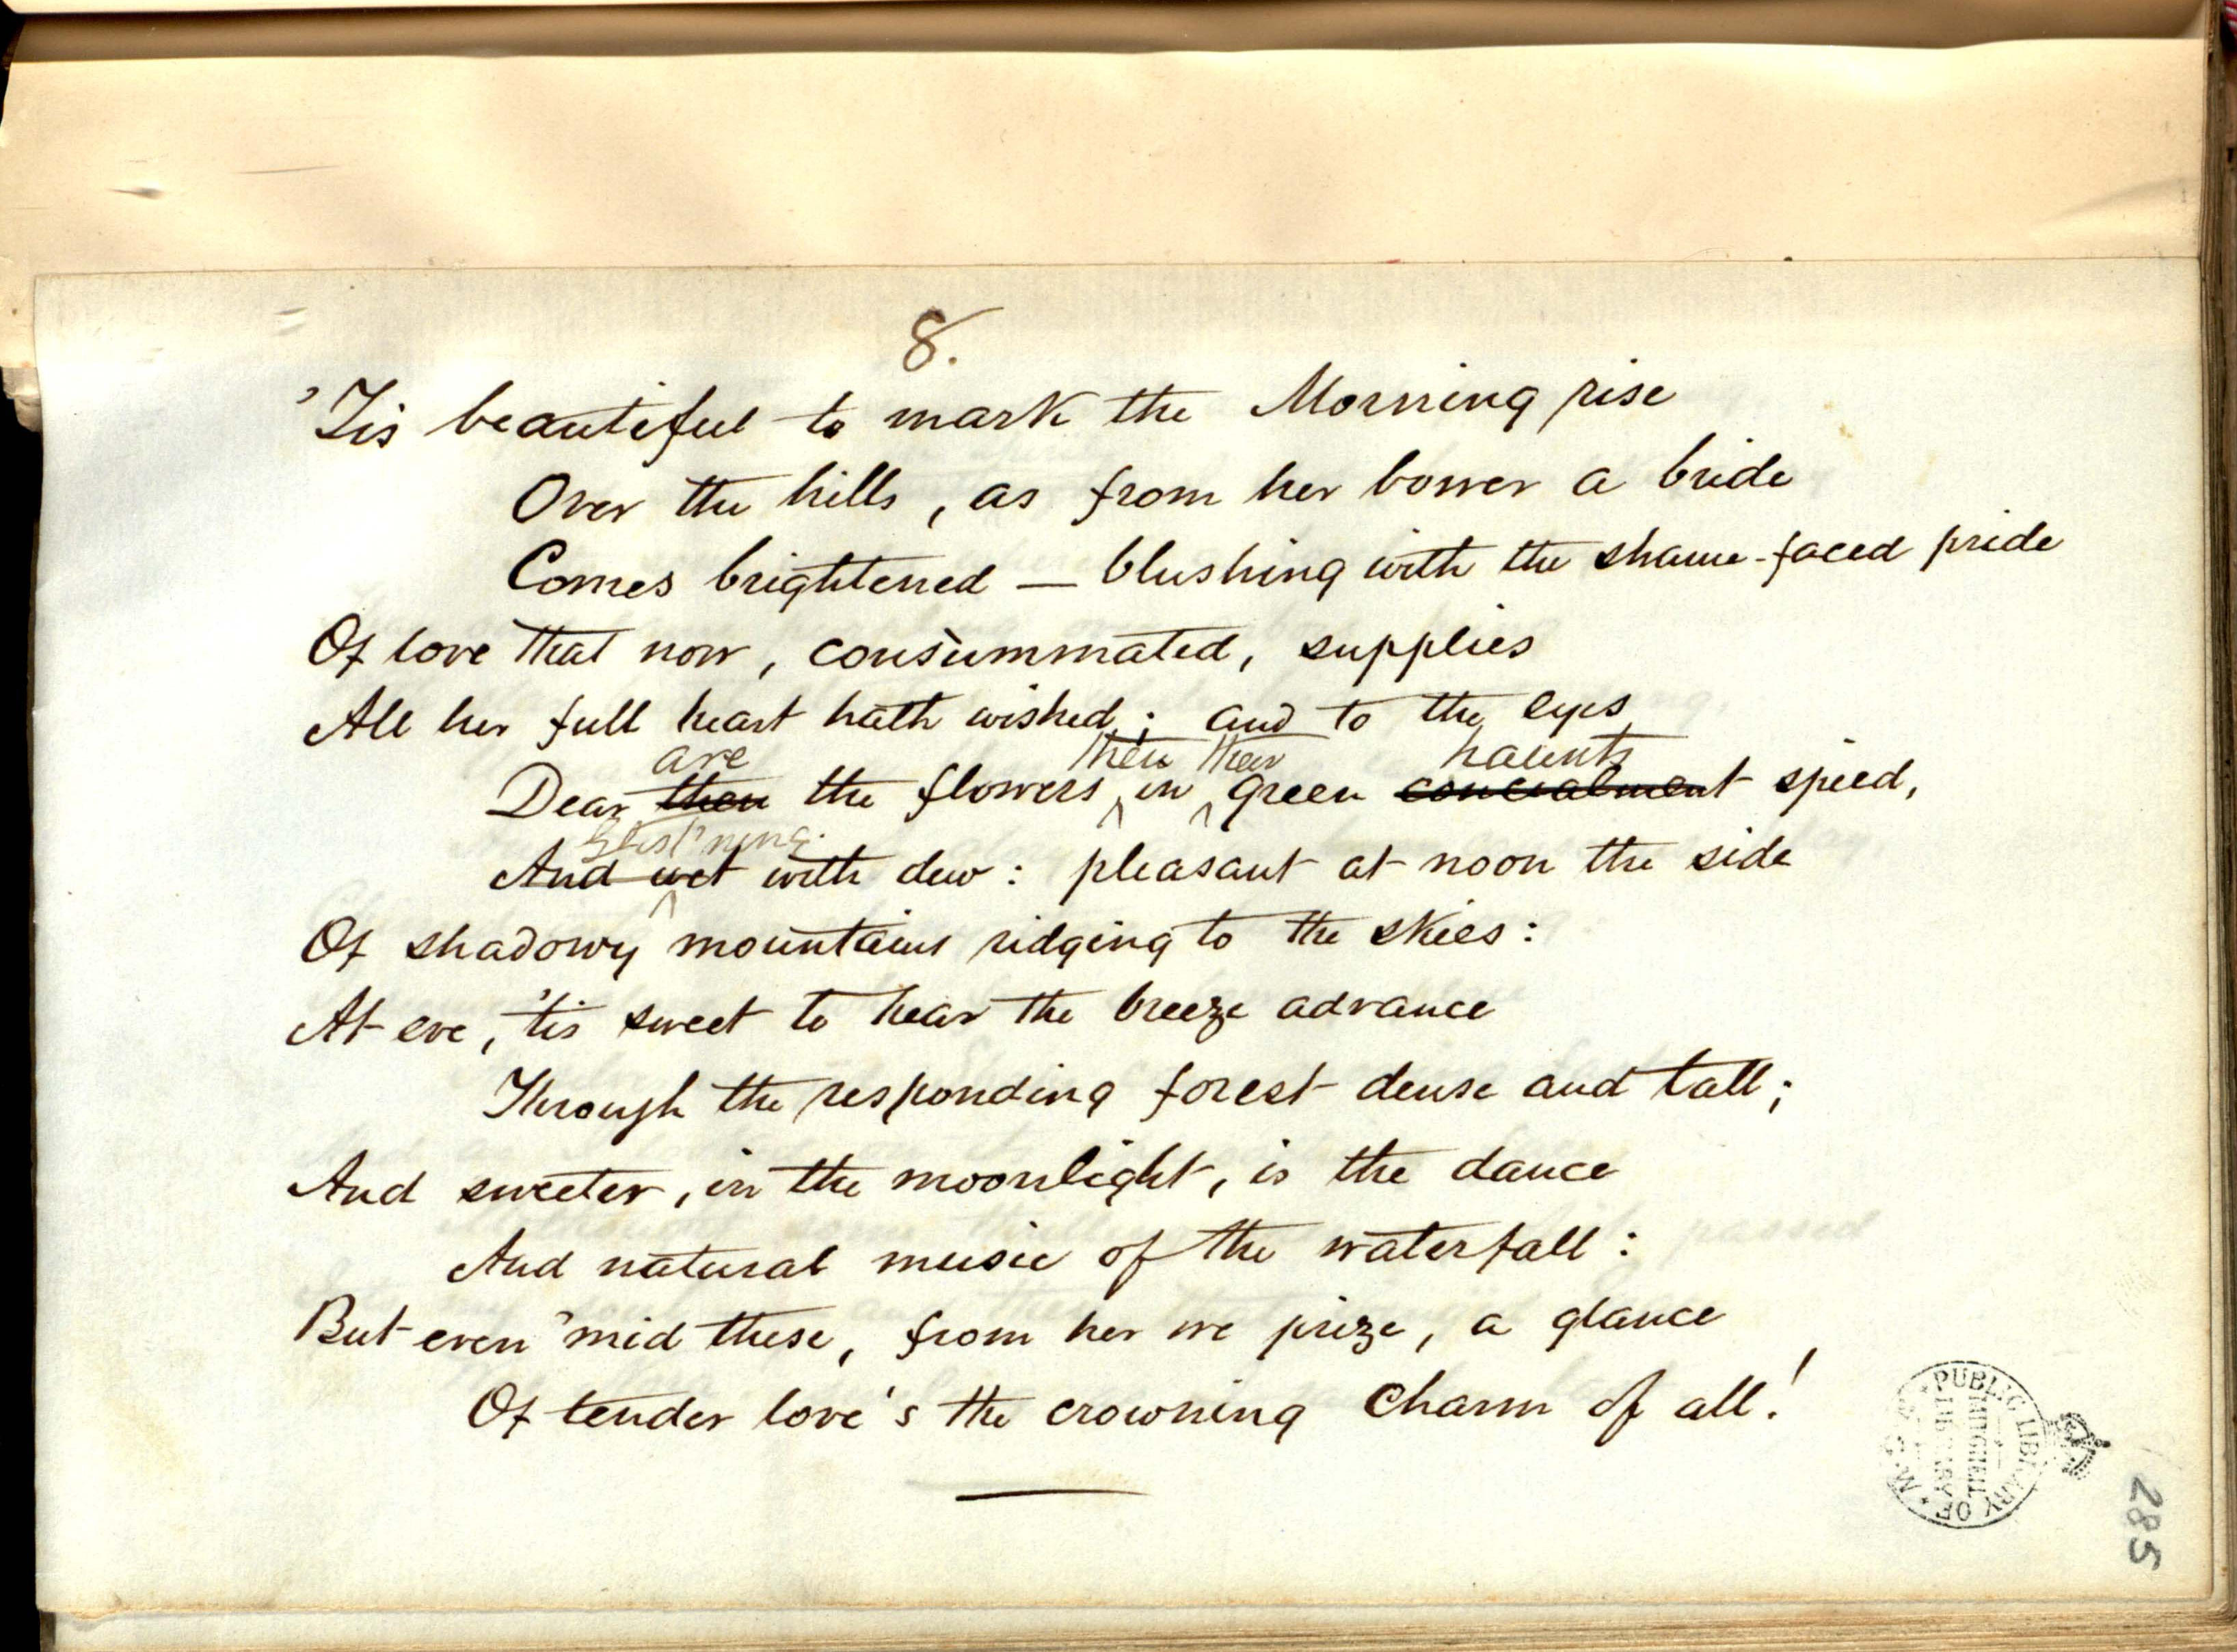 8.
'Tis beautiful to mark the Morning rise
Over the hills, as from her bower a bride
Comes brightened — blushing with the shame-faced pride
Of love that now, consummated, supplies
All her full heart hath wished; and to the eyes
are then their haunts
Dear then the flowers, in green concealment spied,
Glist'ning
And wet with dew: pleasant at noon the side
Of shadowy mountains ridging to the skies:
At eve, 'tis sweet to hear the breeze advance
Through the responding forest dense and tall;
And sweeter, in the moonlight, is the dance
And natural music of the waterfall:
But even 'mid these, from her we prize, a glance
Of tender love's the crowning charm of all!
PUBLIC LIBRARY OF N.S.W.
MITCHELL
LIBRARY
285